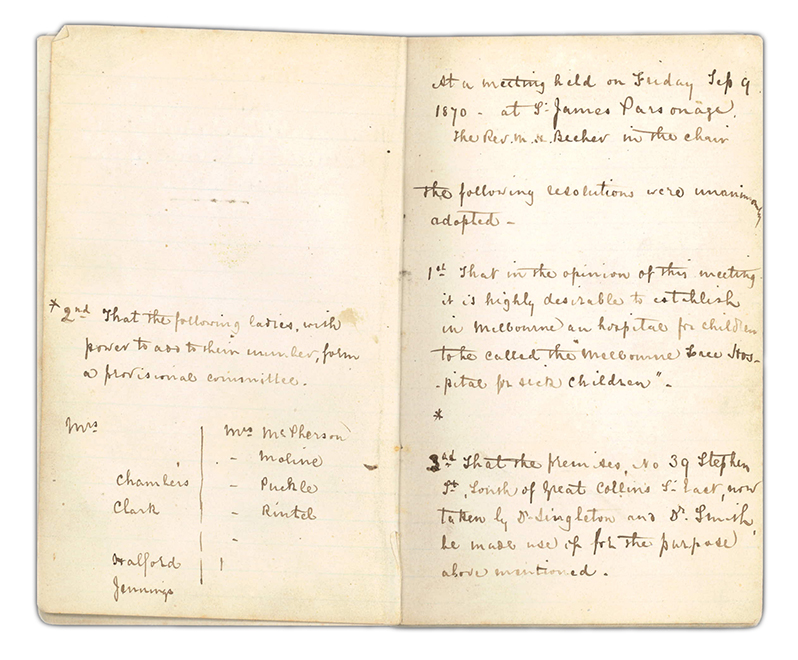 * 2nd That the following ladies, with
power to add to their number, form
a provisional committee.
Mrs
Chambers
Clark
Halford
Jennings
Mrs McPherson
- Moline
- Puckle
- Rintel
-
At a meeting held on Friday Sep 9
1870 - at St James Parsonage.
The Rev. M. H. Becher in the chair
the following resolutions were unanimously
adopted -
1st That in the opinion of this meeting
it is highly desirable to establish
in Melbourne an hospital for children
to be called the "Melbourne Free Hos-
-pital for sick children" -
*
3rd That the premises, No 39 Stephen
St, South of Great Collins St East, now
taken by Dr Singleton and Dr. Smith,
be made use of for the purpose
above mentioned.